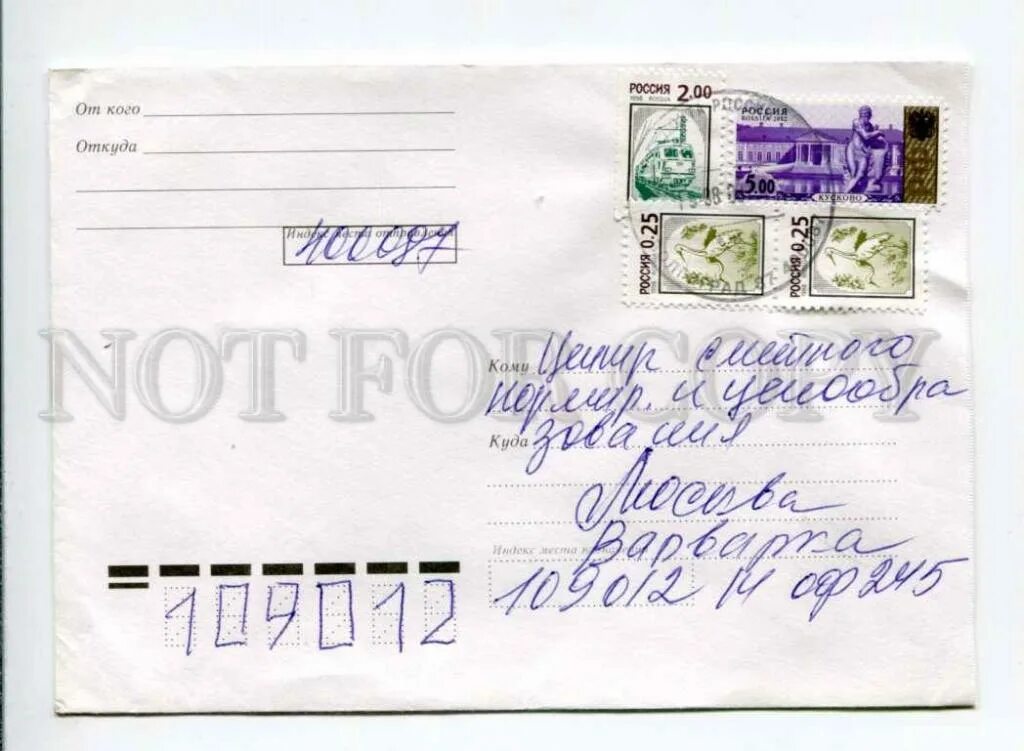 От кого
Откуда
Индекс места отправления
400087
РОССИЯ 2.00
1998 ROSSIJA
РОССИЯ
ROSSIJA 2002
5.00
КУСКОВО
РОССИЯ 0.25
РОССИЯ 0.25
РОССИЯ
ВОЛГОГРАД 87
NOT FOR COPY
Кому Центр сметного
нормир. и ценообра
Куда зования
Москва
Варварка
Индекс места назначения
109012 14 оф 245
109012